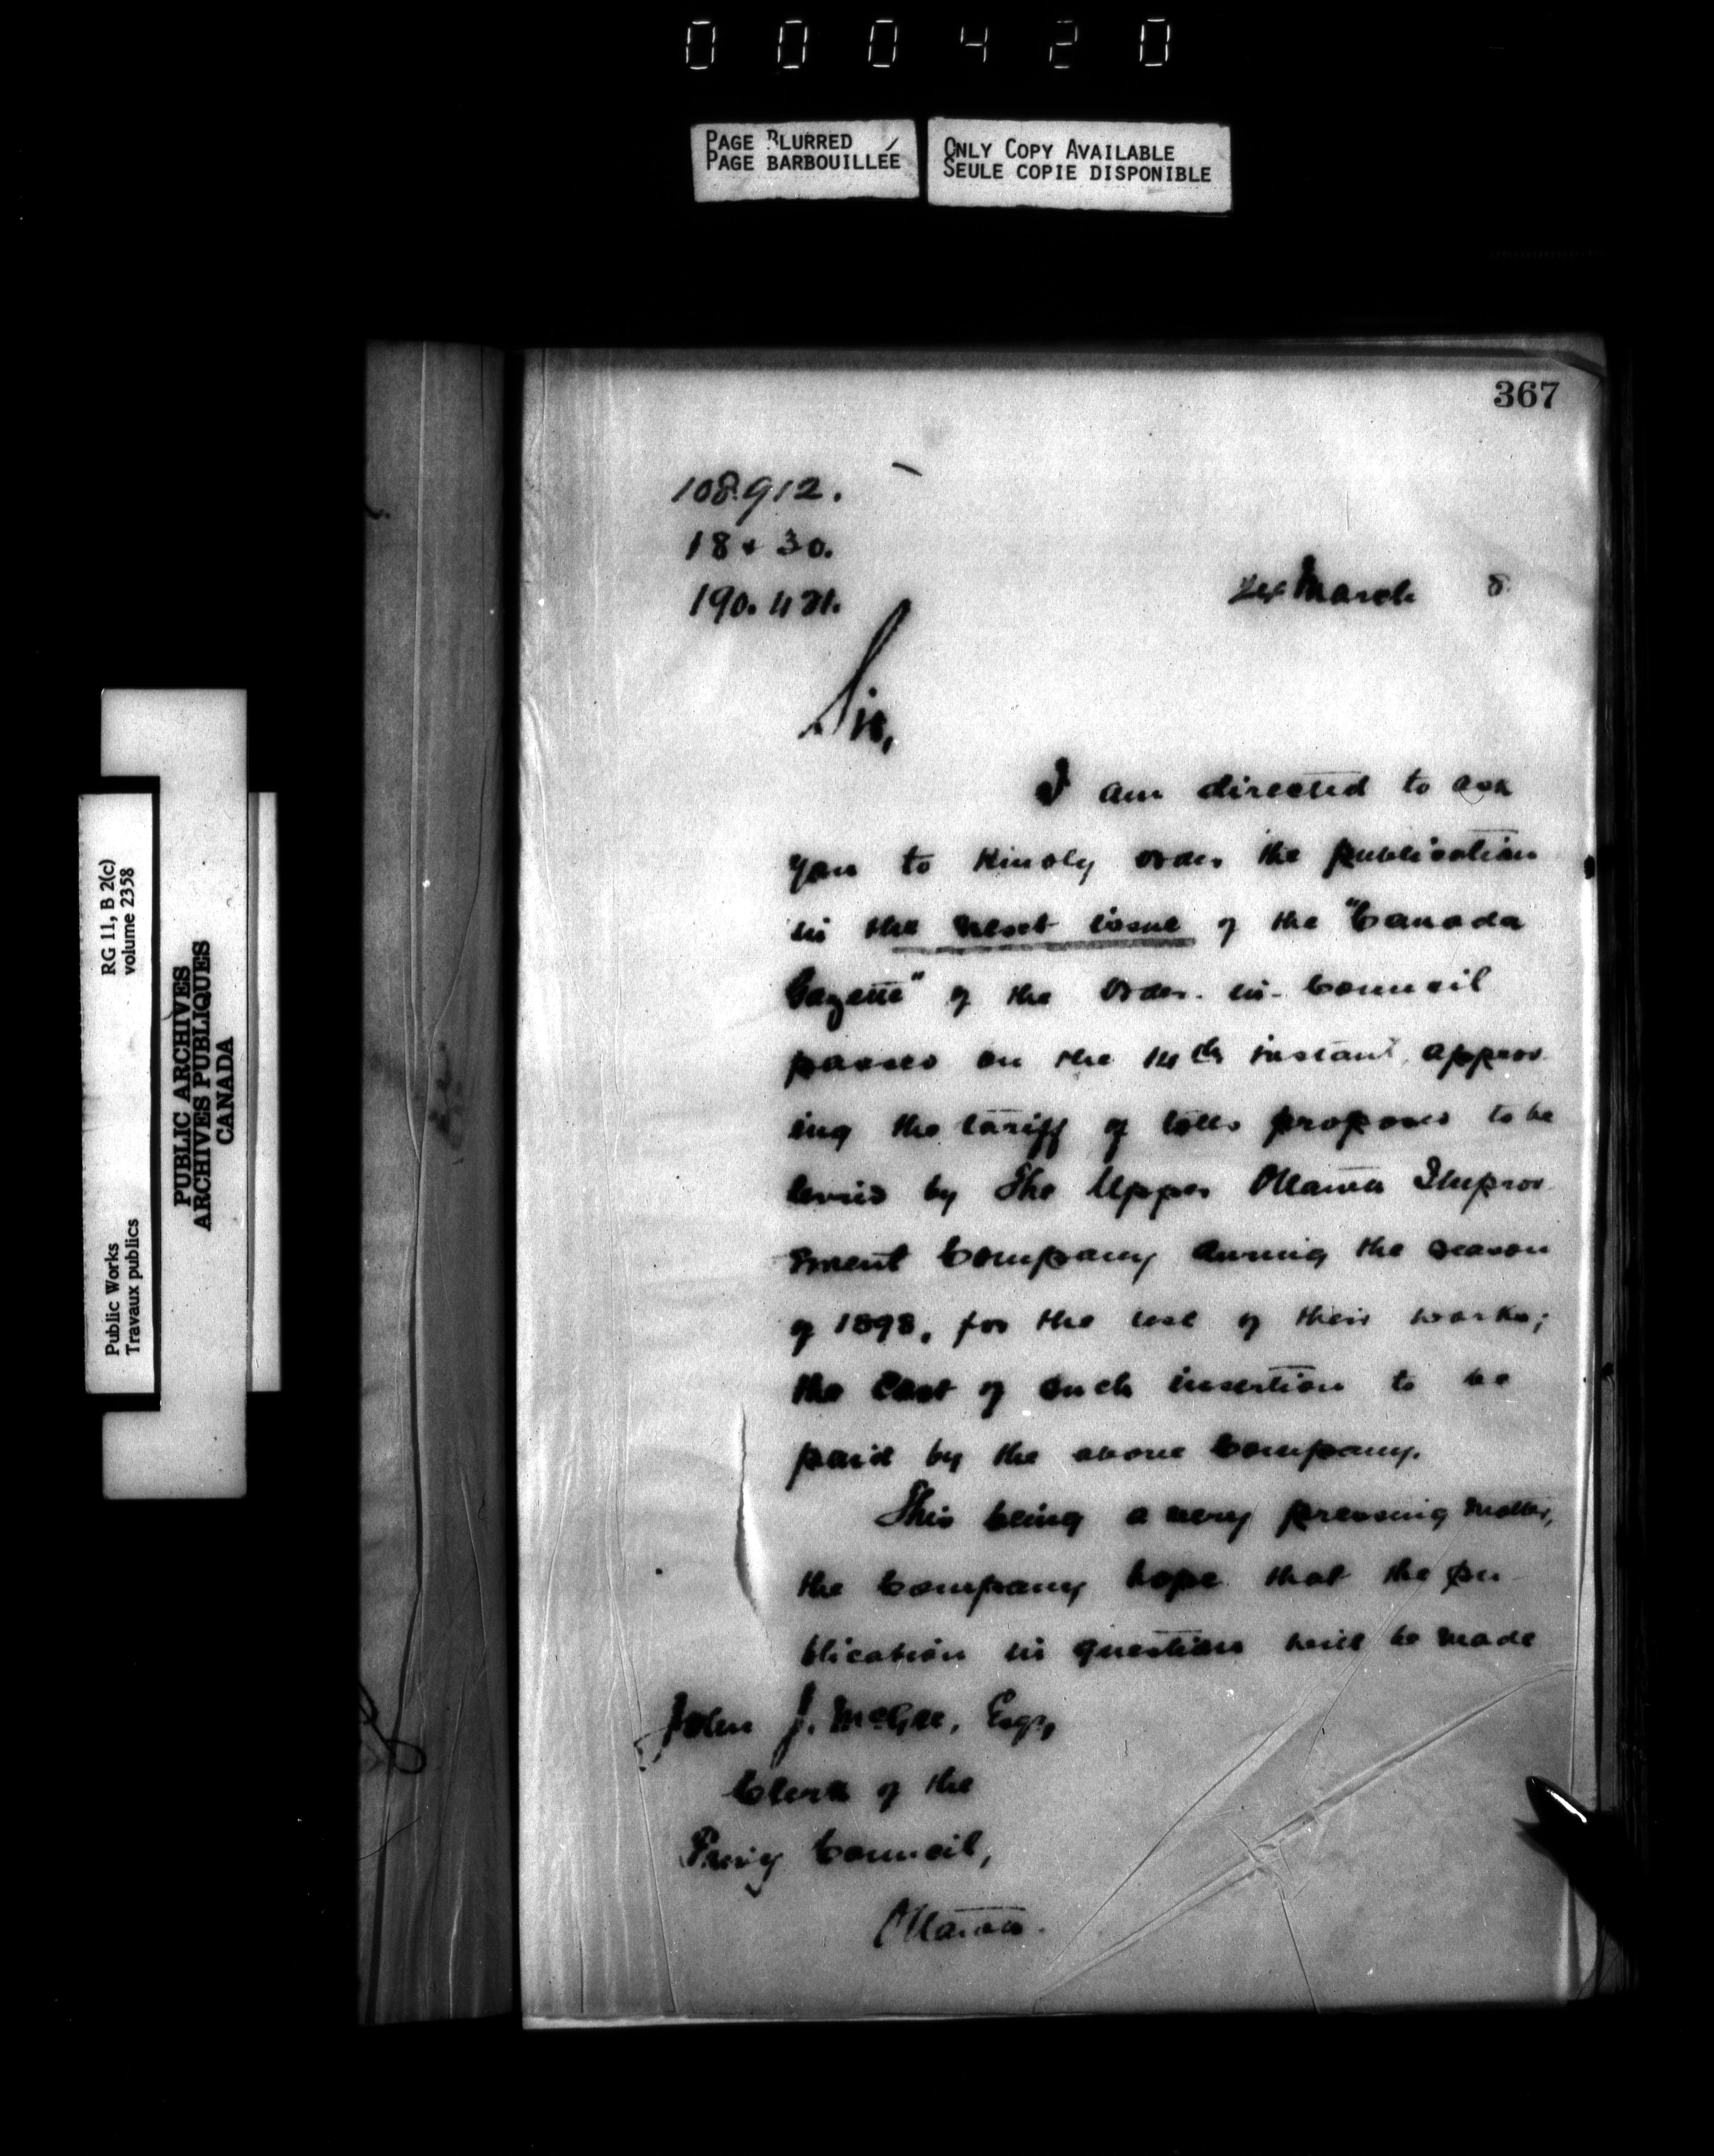 000420
PAGE BLURRED
PAGE BARBOUILLÉE
ONLY COPY AVAILABLE
SEULE COPIE DISPONIBLE
RG 11, B 2(c)
volume 2358
Public Works
Travaux publics
PUBLIC ARCHIVES
ARCHIVES PUBLIQUES
CANADA
367
108.912.
18 & 30.
March 8
Sir,
I am directed to ask
you to kindly order the publication
in the next issue of the "Canada
Gazette" of the Order-in-Council
passed on the 14th instant, approv-
ing the tariff of tolls proposed to be
levied by The Upper Ottawa Improv-
ement Company during the season
of 1898, for the use of their works;
the cost of such insertion to be
paid by the above Company.
This being a very pressing matter,
the Company hope that the pu-
blication in question will be made
John J. McGee, Esq.,
Clerk of the
Privy Council,
Ottawa.